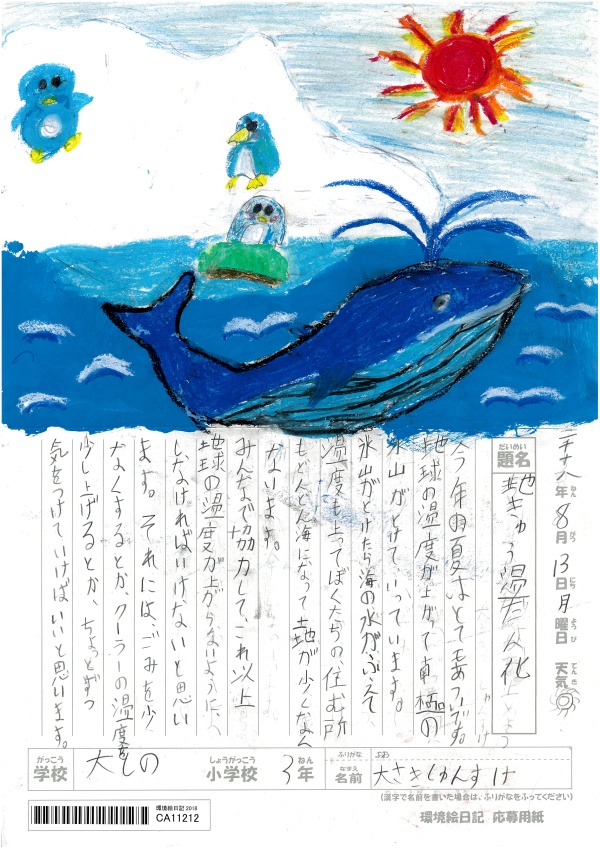 二千十八年8月13日月曜日 天気
ねん がつ にち ようび てんき
だいめい
題名 地きゅう温だん化
今年の夏はとてもあついです。
地球の温度が上がって南極の
氷山がとけていっています。
氷山がとけたら海の水がふえて
温度も上ってぼくたちの、住む所
もどんどん海になって土地が少くなん
ないます。
みんなで協力して、これ以上
地球の温度が上がらないように、
しなければいけないと思い
ます。それには、ごみを少
なくするとか、クーラーの温度を
少し上げるとか、ちょっとずつ
気をつけていけばいいと思います。
がっこう しょうがっこう ねん ふりがな
学校 大しの 小学校 3年 なまえ 名前 大さきしゅんすけ
(漢字で名前を書いた場合は、ふりがなをふってください)
環境絵日記 2018
CA11212
環境絵日記 応募用紙